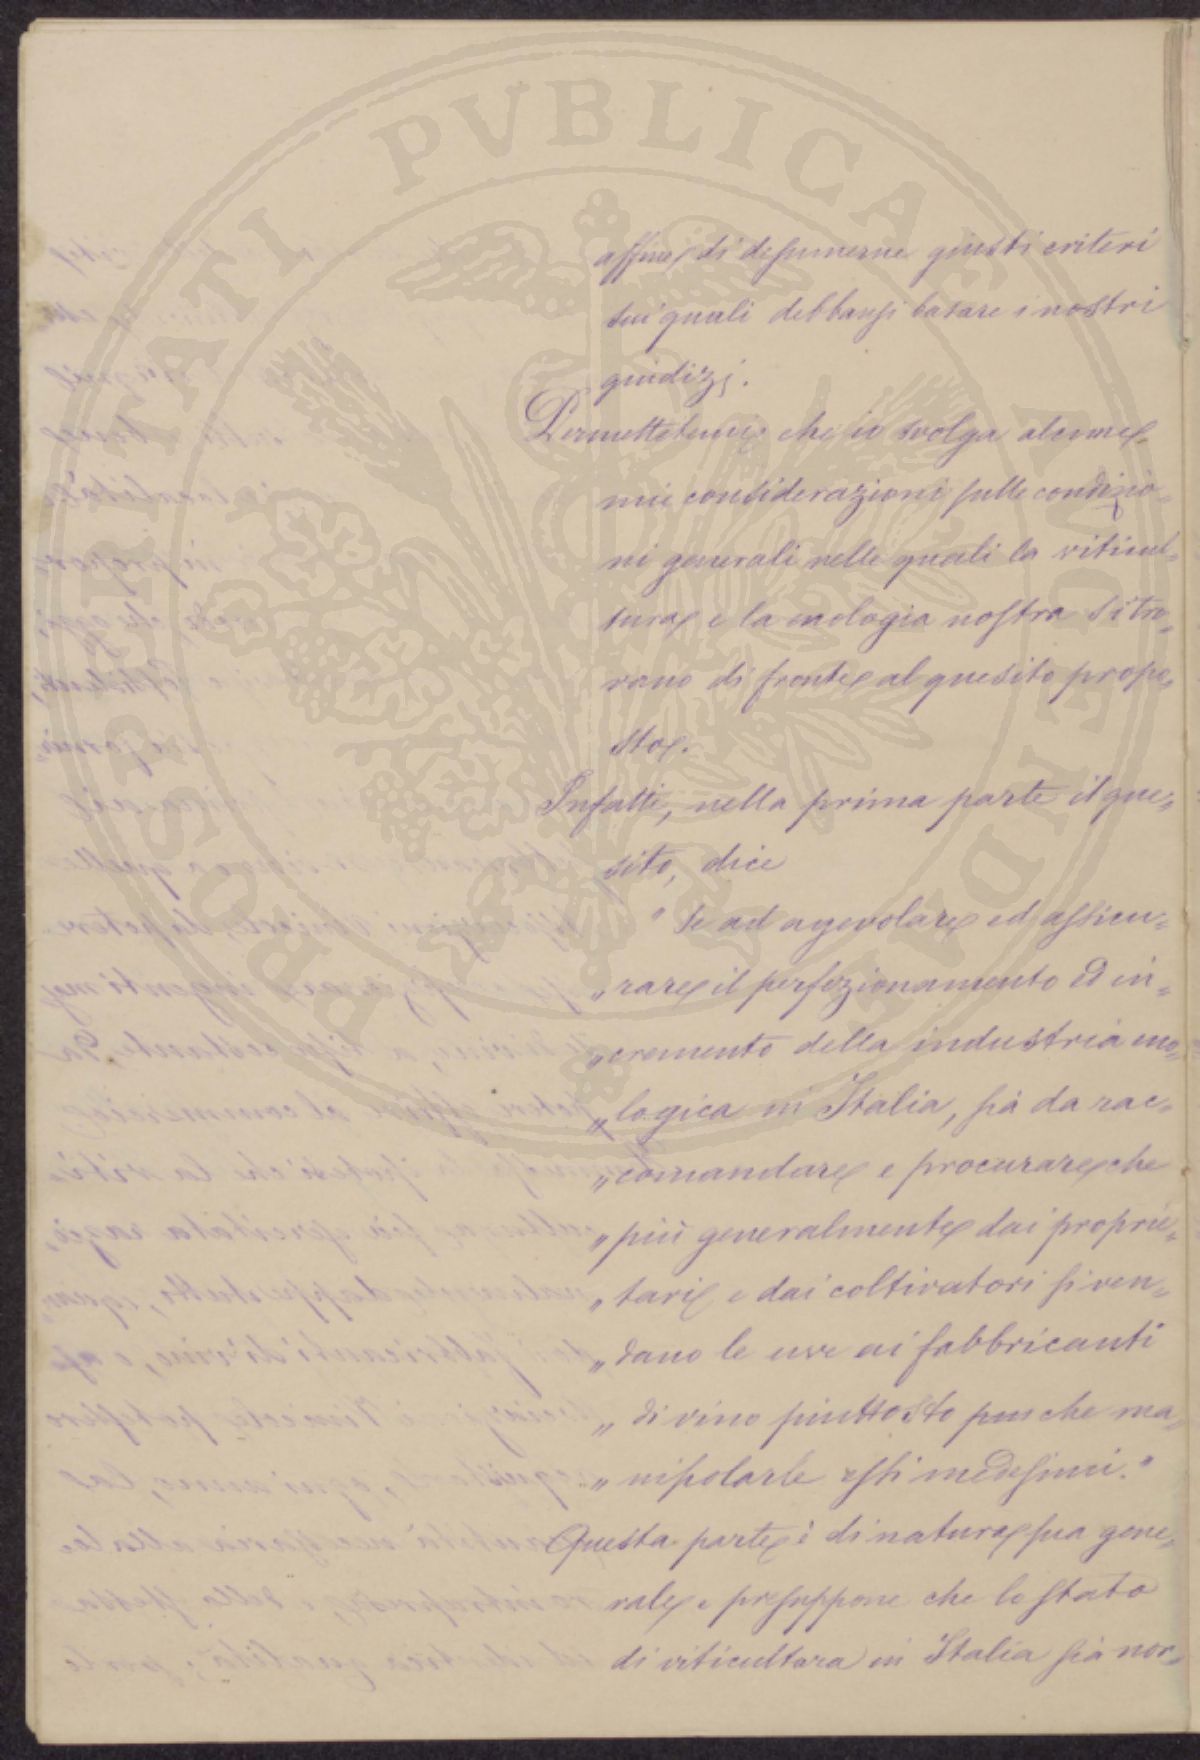 affine di desumerne giusti criteri
sui quali debbansi basare i nostri
giudizj.
Permettetemi che io svolga alcune
mie considerazioni sulle condizio„
ni generali nelle quali la viticul„
tura e la enologia nostra si tro„
vano di fronte al quesito propo„
sto.
Infatti, nella prima parte il que„
sito, dice
" Se ad agevolare ed assicu„
„ rare il perfezionamento ed in„
„ cremento della industria eno„
„ logica in Italia, sia da rac„
„ comandare e procurare che
„ più generalmente dai proprie„
„ tari e dai coltivatori si ven„
„ dano le uve ai fabbricanti
„ di vino piuttosto che ma„
„ nipolarle essi medesimi."
Questa parte è di natura sua gene„
rale e presuppone che lo stato
di viticultura in Italia sia nor„
PROSPERITATI PVBLICAE AVGENDAE